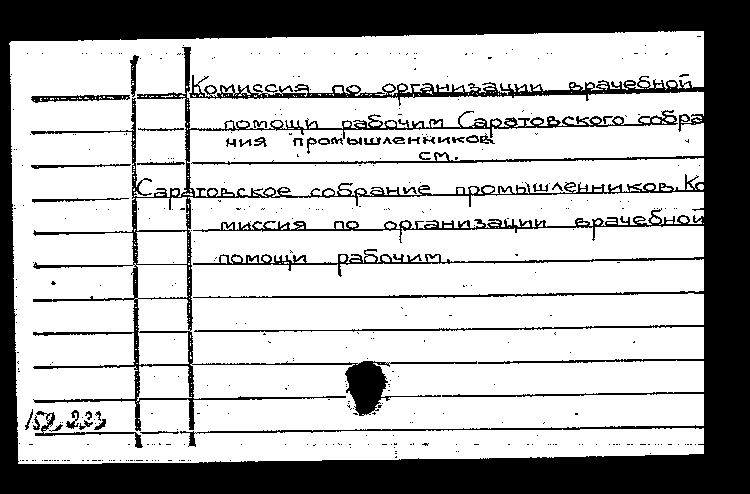 Комиссия по организации врачебной
помощи рабочим Саратовского собра
ния промышленников
см.
Саратовское собрание промышленников. Ко
миссия по организации врачебной
помощи рабочим.